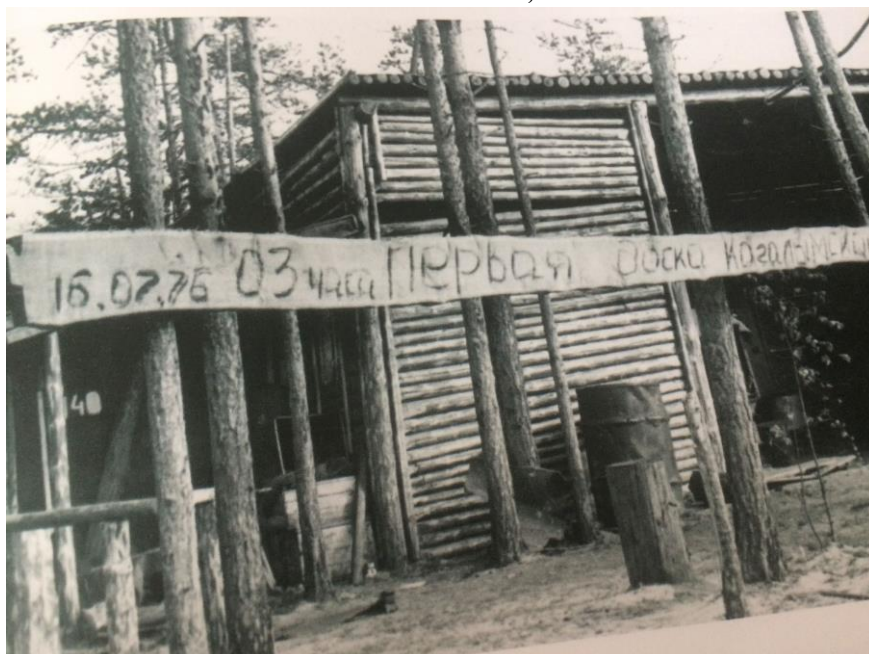 40
16.07.76 03 часа Первая доска Когалымская